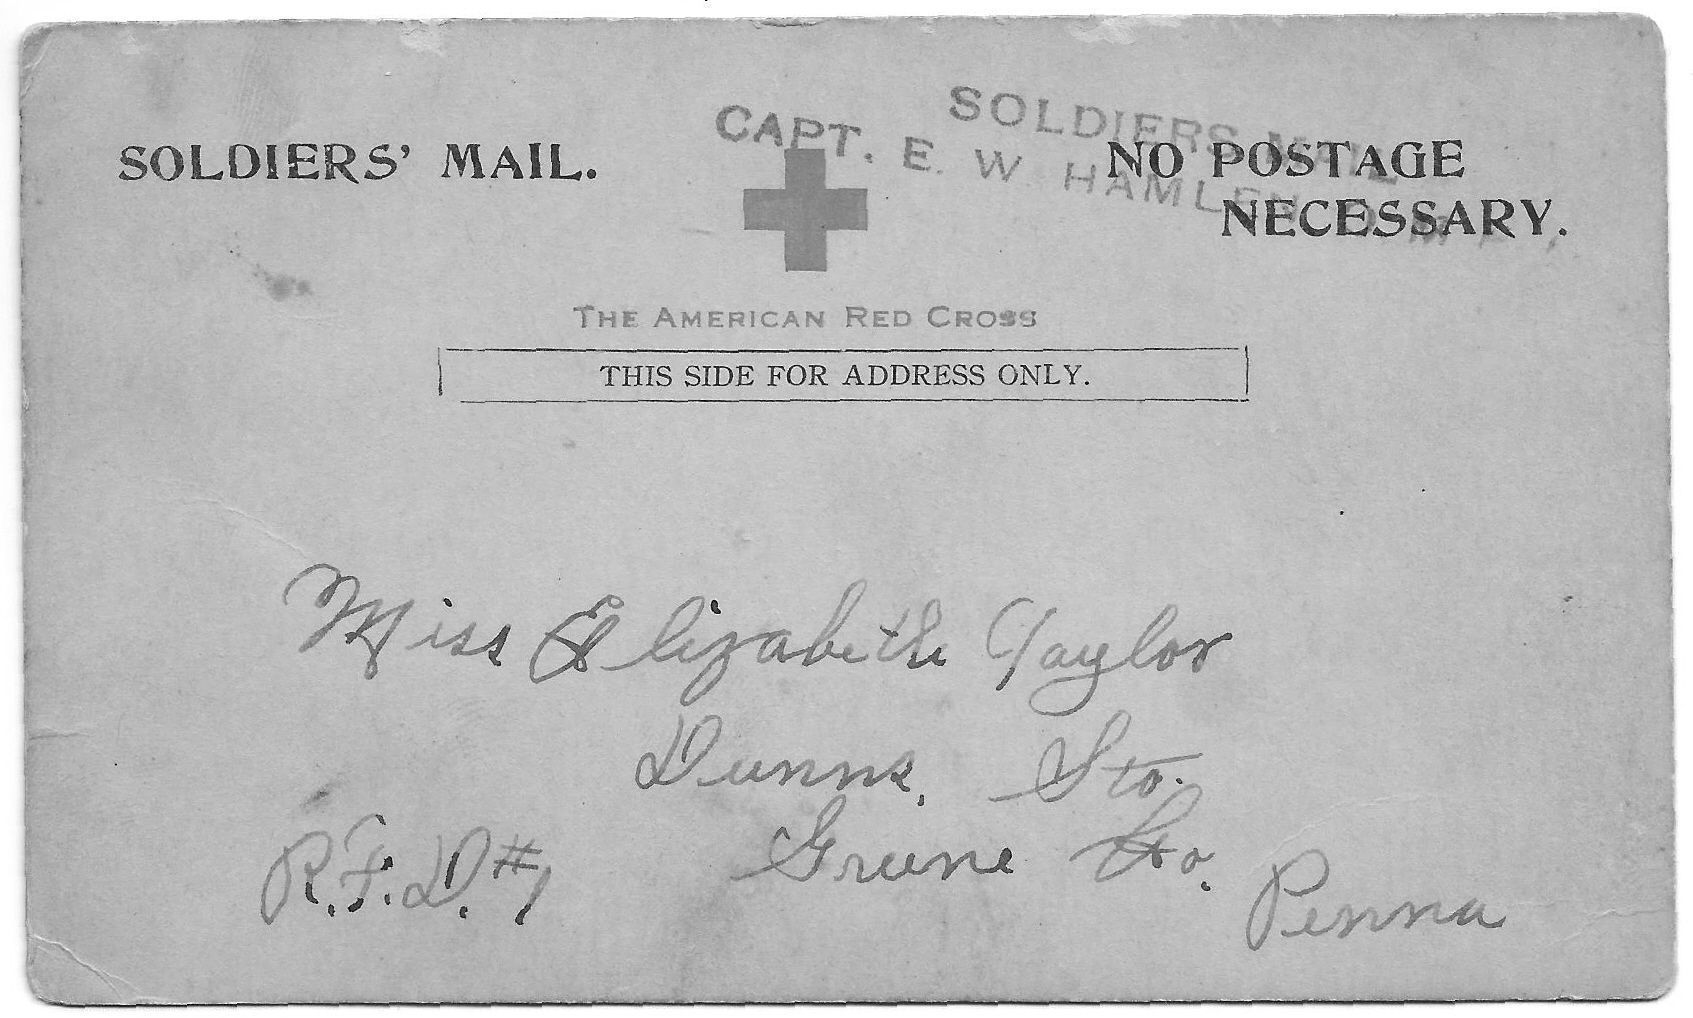 SOLDIERS MAIL
CAPT. E. W. HAMLEN
SOLDIERS' MAIL.
NO POSTAGE
NECESSARY.
THE AMERICAN RED CROSS
THIS SIDE FOR ADDRESS ONLY.
Miss Elizabeth Taylor
Dunns, Sta.
Greene Co.
R.F.D. #1
Penna